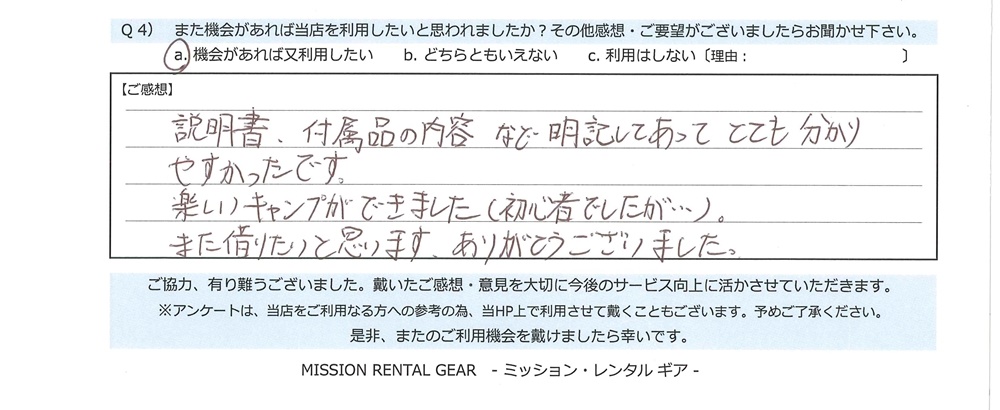 Q4） また機会があれば当店を利用したいと思われましたか？その他感想・ご要望がございましたらお聞かせ下さい。
a. 機会があれば又利用したい b. どちらともいえない c. 利用はしない〔理由： 〕
【ご感想】
説明書、付属品の内容 など 明記してあって とても 分かり
やすかったです。
楽しいキャンプができました（初心者でしたが…）。
また借りたいと思います、ありがとうございました。
ご協力、有り難うございました。戴いたご感想・意見を大切に今後のサービス向上に活かさせていただきます。
※アンケートは、当店をご利用なる方への参考の為、当HP上で利用させて戴くこともございます。予めご了承ください。
是非、またのご利用機会を戴けましたら幸いです。
MISSION RENTAL GEAR - ミッション・レンタル ギア -